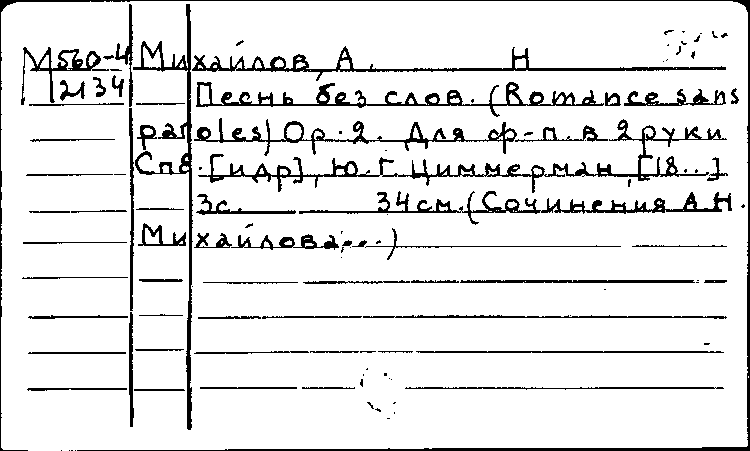 М560-4 Михайлов, А. Н
2134 Песнь без слов. (Romance sans
paroles) Op. 2. Для ф-п. в 2 руки
Спб. [и др], Ю. Г. Циммерман, [18...]
3с. 34см. (Сочинения А.Н.
Михайлова...)